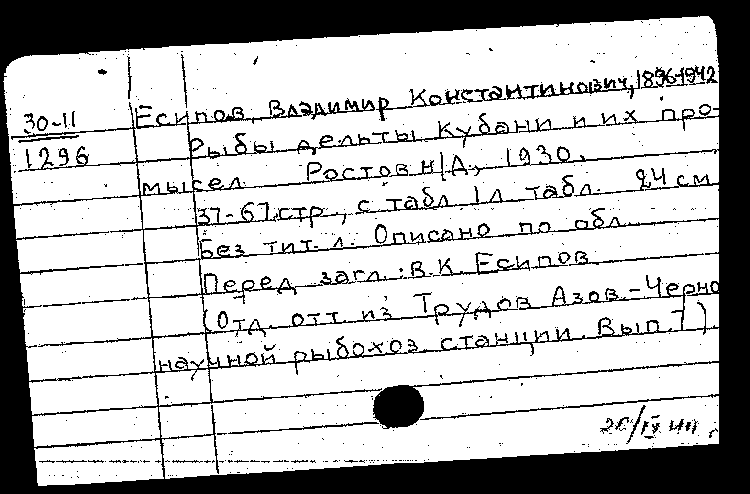 30-11
1296
Есипов, Владимир Константинович, 1896-1942
Рыбы дельты Кубани и их про-
мысел. Ростов н/Д., 1930.
37-67 стр., с табл. 1 л. табл. 24 см.
Без тит. л. Описано по обл.
Перед загл.: В. К. Есипов
(Отд. отт. из Трудов Азов.-Черно
научной рыбохоз. станции. Вып. 7).